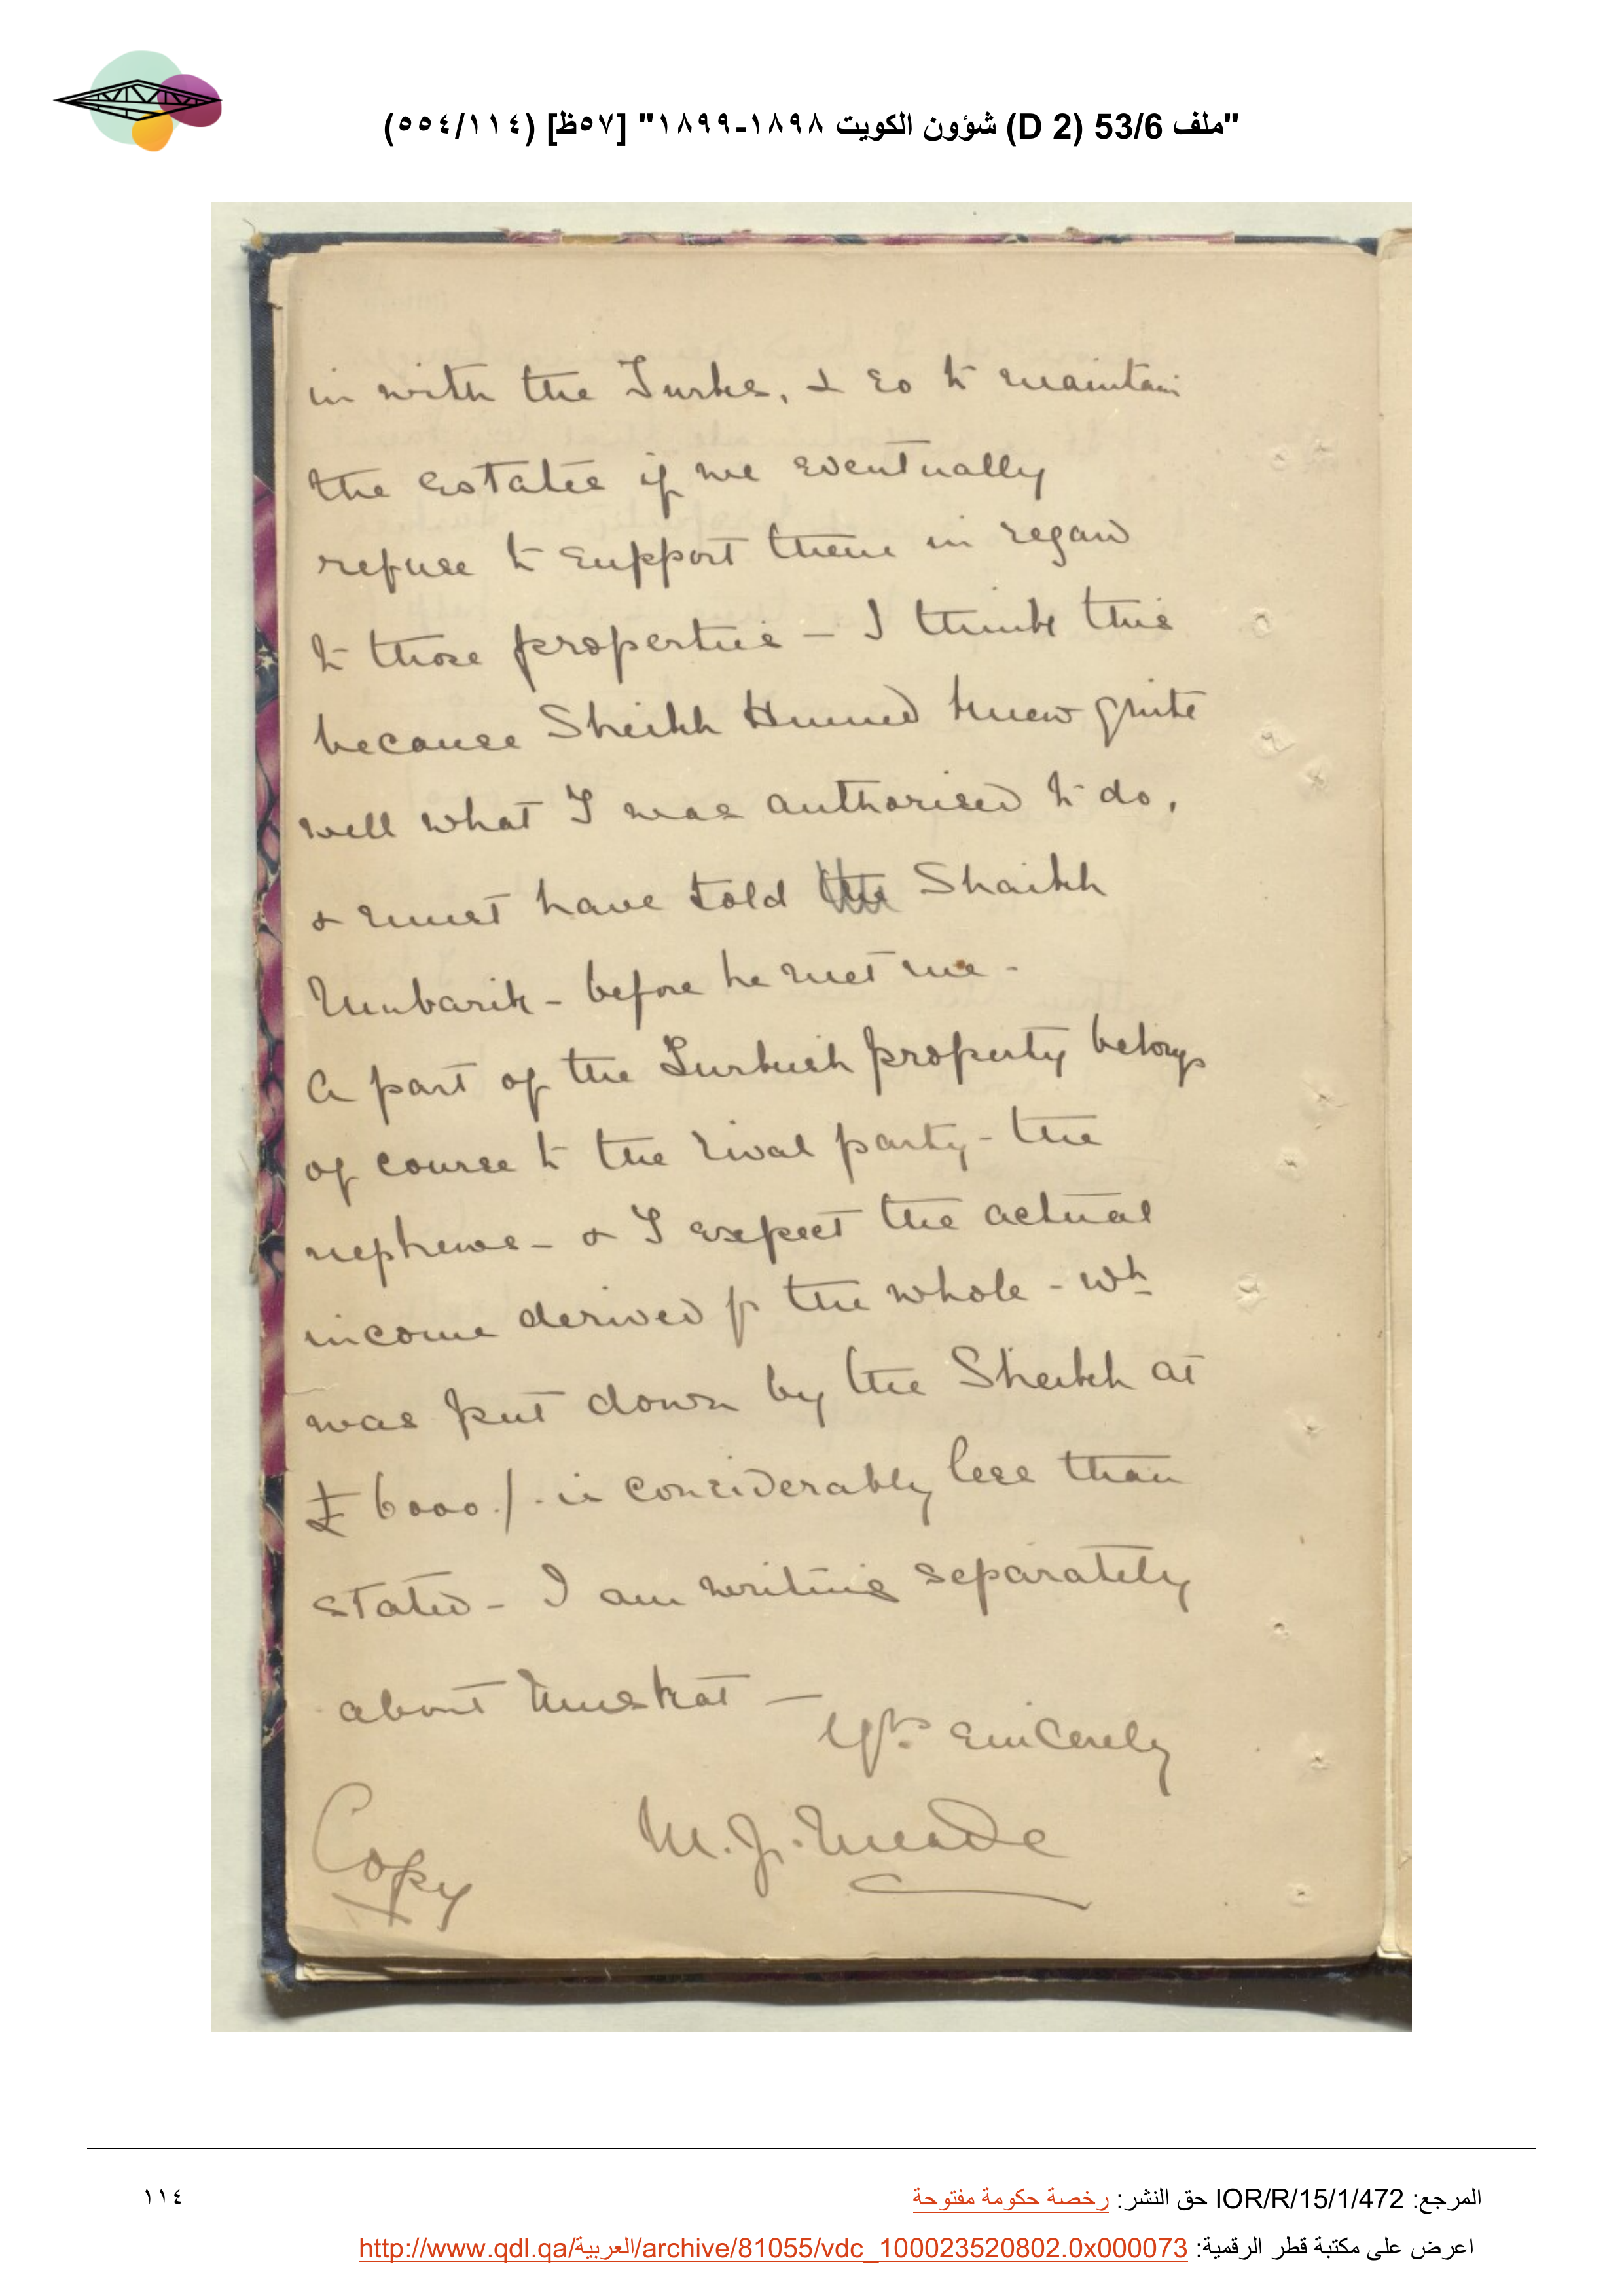 "ملف 53/6 (D 2) شؤون الكويت ١٨٩٨-١٨٩٩" [٥٧ظ] (٥٥٤/١١٤)
in with the Turks, & so to maintain
the estates if we eventually
refuse to support them in regard
to those properties - I think this
because Sheikh Humud knew quite
well what I was authorised to do,
& must have told the Shaikh
Mubarik - before he met me -
A part of the Turkish property belongs
of course to the rival party - the
nephews - & I expect the actual
income derived fr the whole - wh
was put down by the Sheikh at
£ 6000./. is considerably less than
stated - I am writing separately
about Muskat -
Yrs sincerely
M. J. Meade
Copy
المرجع: IOR/R/15/1/472 حق النشر: رخصة حكومة مفتوحة
١١٤
اعرض على مكتبة قطر الرقمية: http://www.qdl.qa/العربية/archive/81055/vdc_100023520802.0x000073